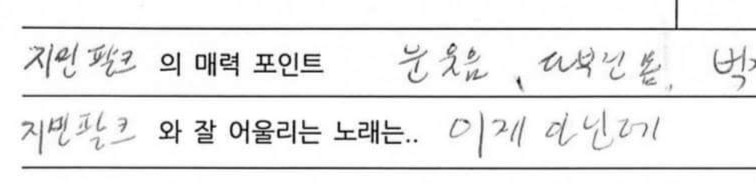 지민팍크 의 매력 포인트 눈웃음, 다부진 몸, 벅
지민팍크 와 잘 어울리는 노래는.. 이게 아닌데